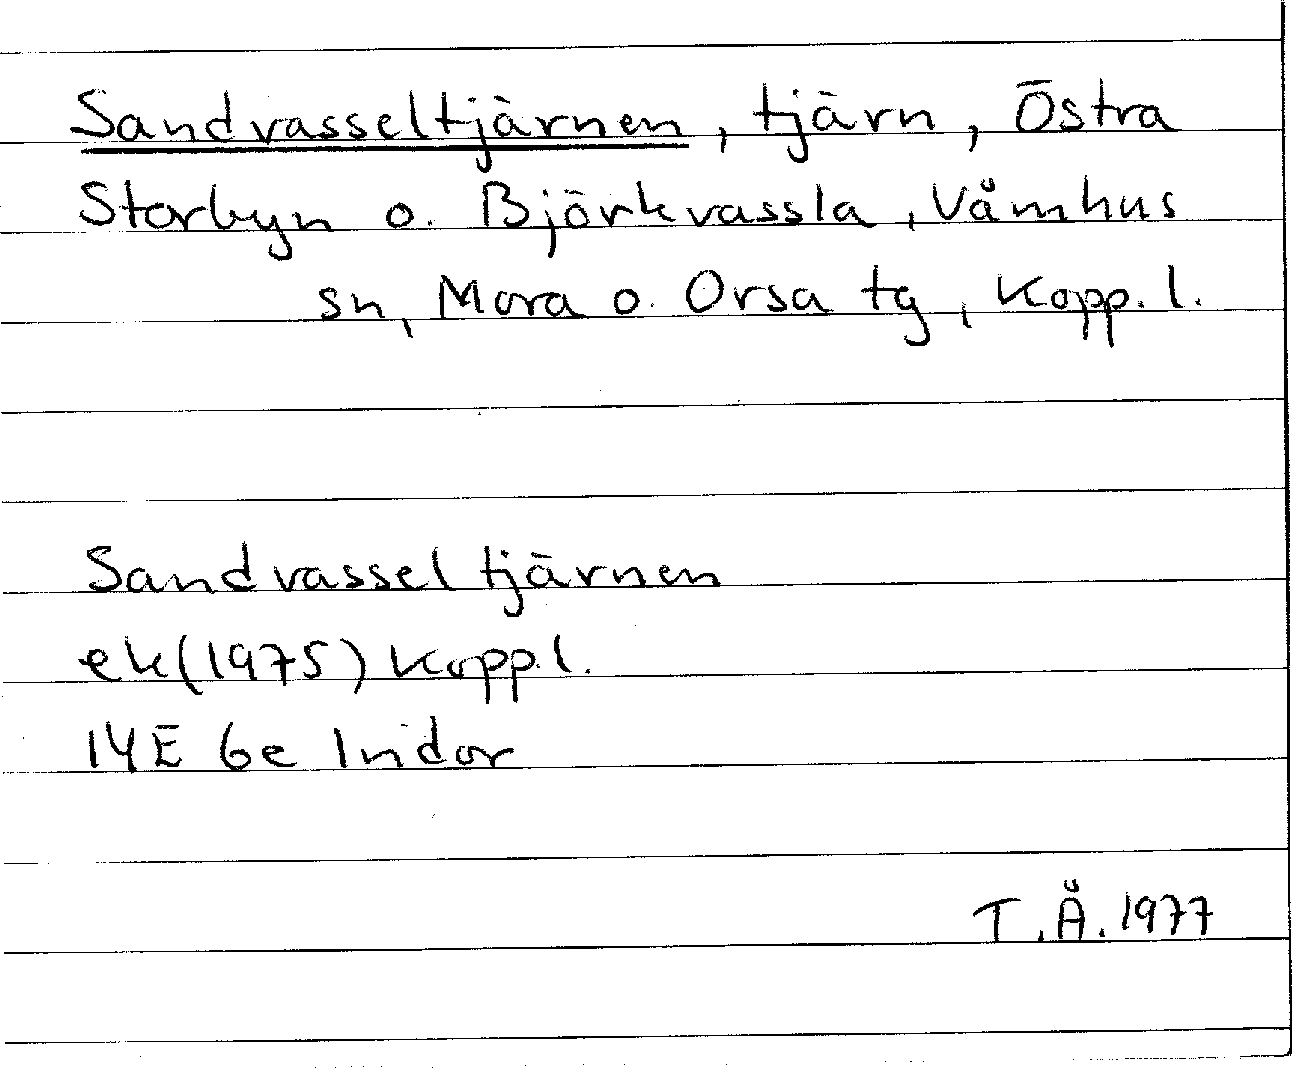 Sandvasseltjärnen, tjärn, Östra
Storbyn o. Björkvassla, Våmhus
sn, Mora o. Orsa tg, Kopp. l.
Sandvasseltjärnen
ek(1975) Kopp l.
14E 6e Indor
T.Å. 1977